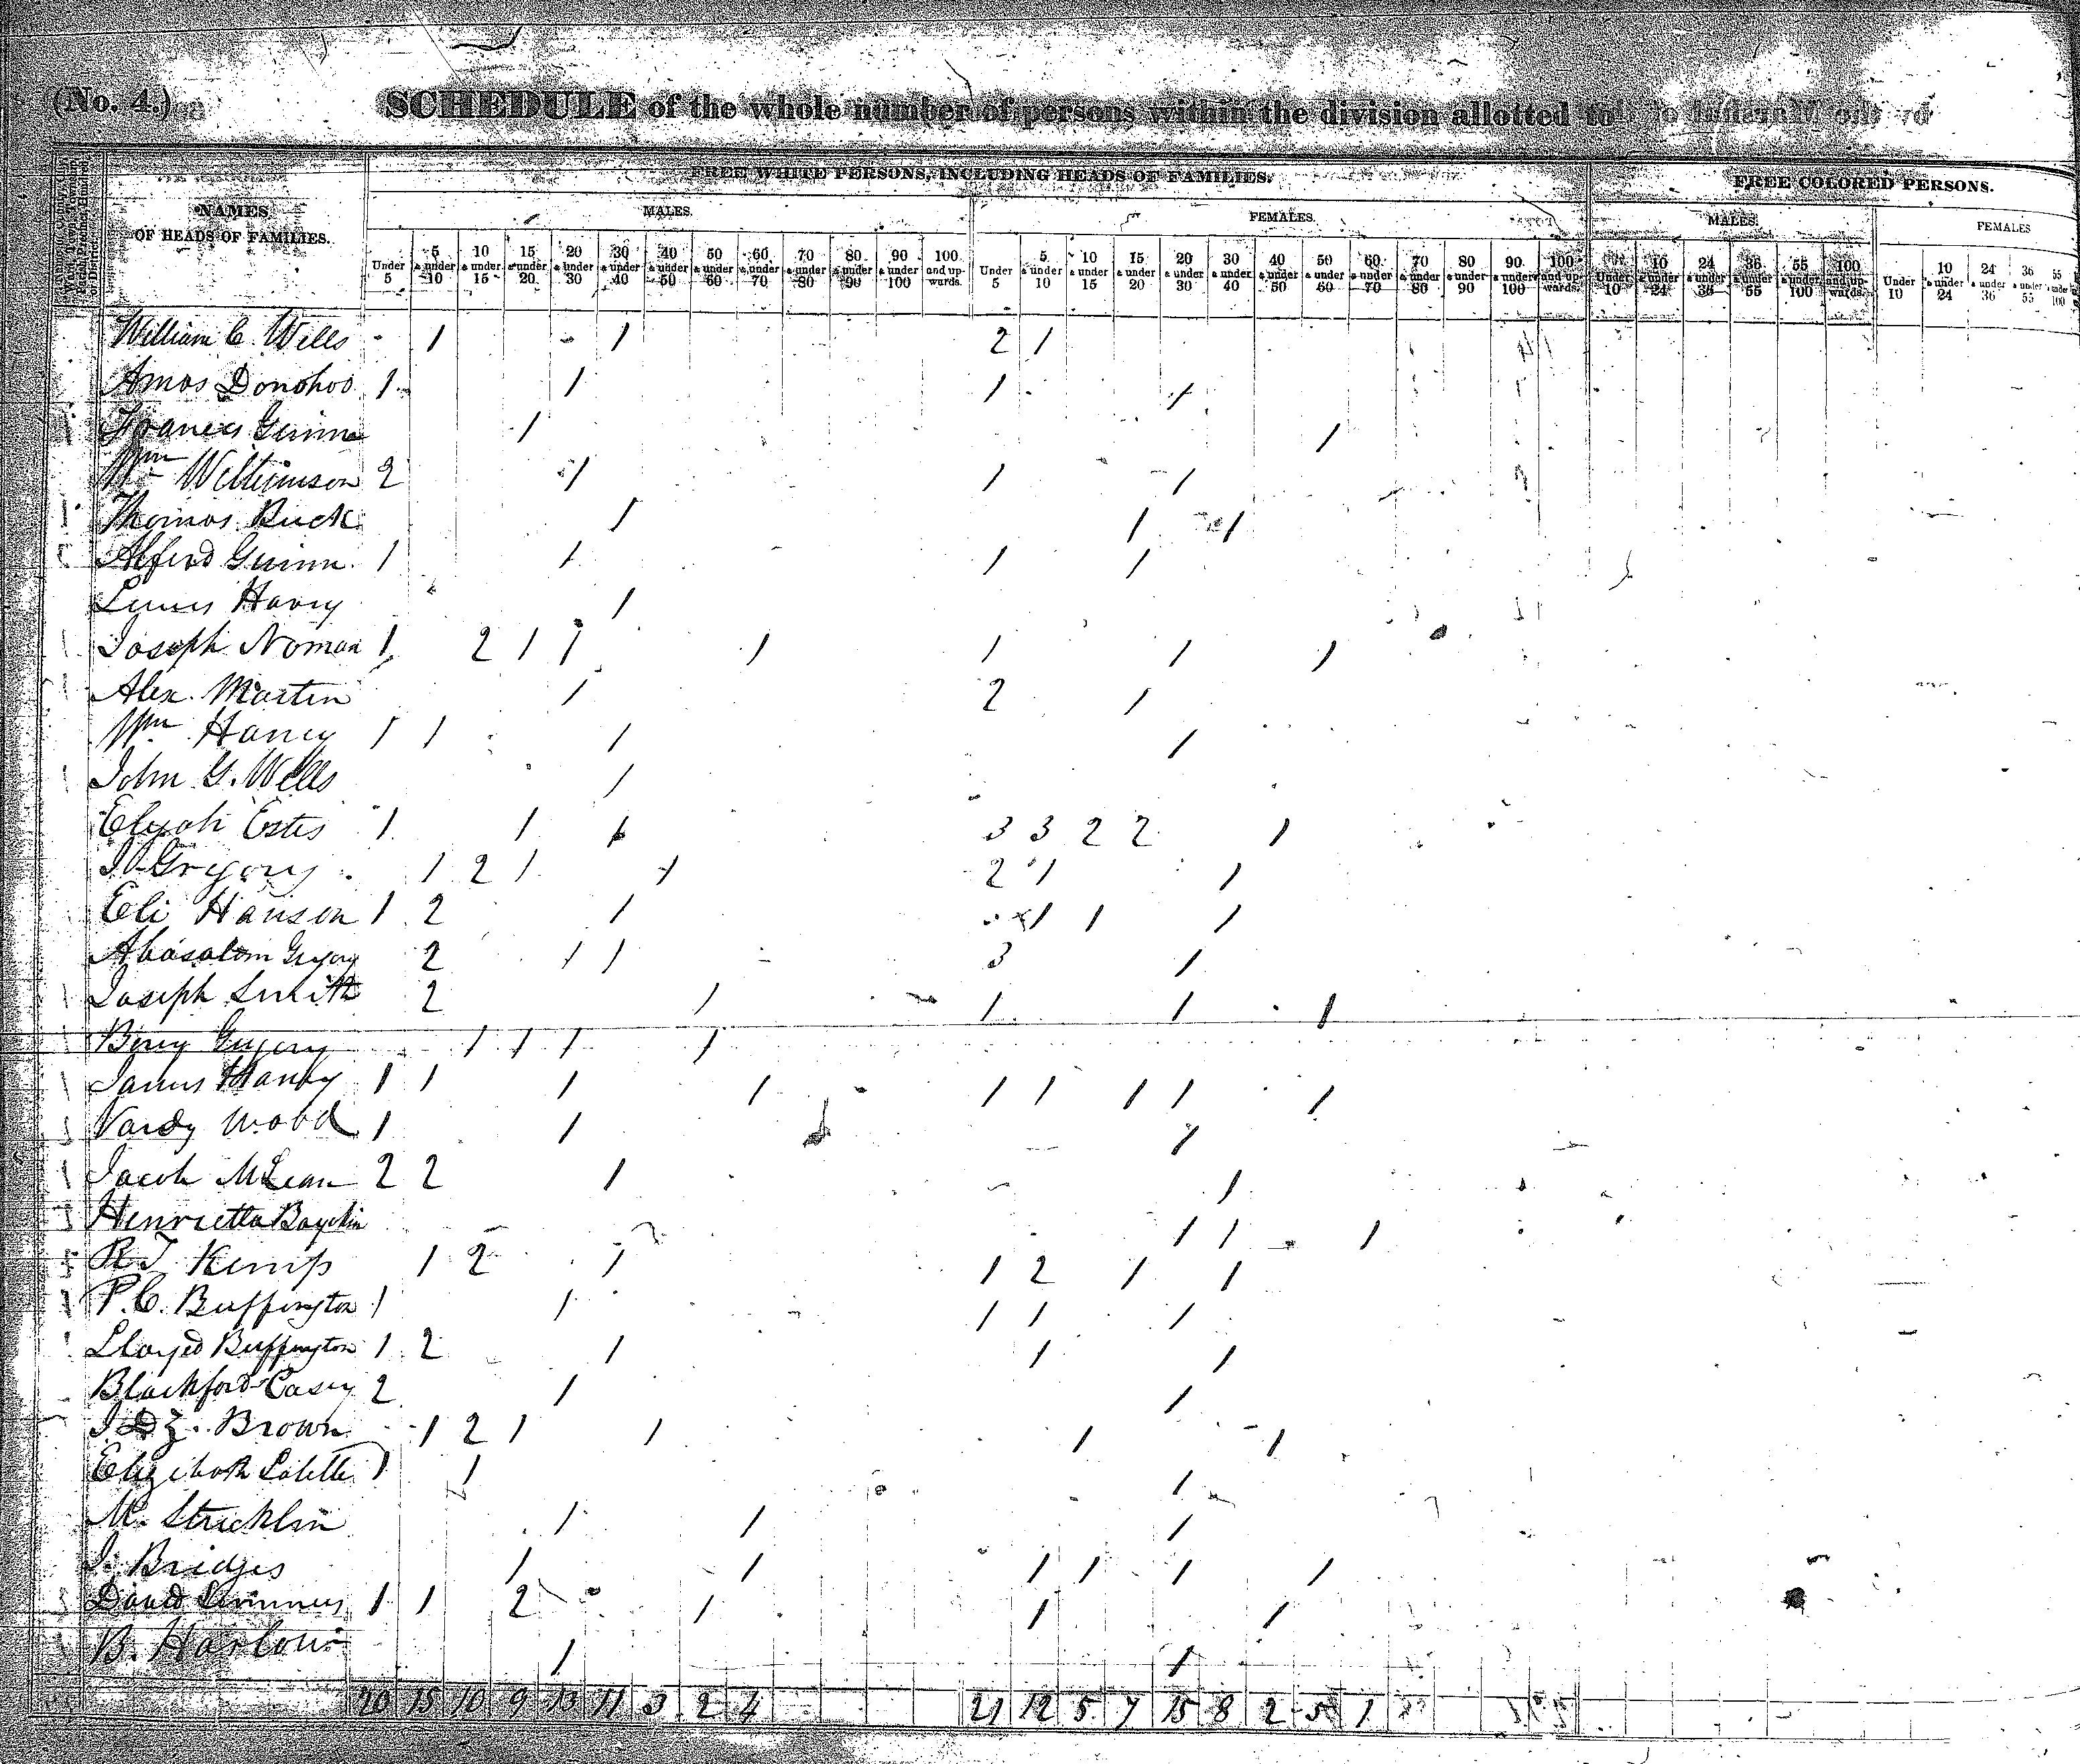 (No. 4.)
SCHEDULE of the whole number of persons within the division allotted to
NAMES OF HEADS OF FAMILIES.
FREE WHITE PERSONS, INCLUDING HEADS OF FAMILIES.
FREE COLORED PERSONS.
MALES. FEMALES. MALES. FEMALES
Under 5 | 5 & under 10 | 10 & under 15 | 15 & under 20 | 20 & under 30 | 30 & under 40 | 40 & under 50 | 50 & under 60 | 60 & under 70 | 70 & under 80 | 80 & under 90 | 90 & under 100 | 100 and upwards. | Under 5 | 5 & under 10 | 10 & under 15 | 15 & under 20 | 20 & under 30 | 30 & under 40 | 40 & under 50 | 50 & under 60 | 60 & under 70 | 70 & under 80 | 80 & under 90 | 90 & under 100 | 100 and upwards. | Under 10 | 10 & under 24 | 24 & under 36 | 36 & under 55 | 55 & under 100 | 100 and upwards. | Under 10 | 10 & under 24 | 24 & under 36 | 36 & under 55 | 55 & under 100
William C. Wells 1 1 2 1
Amos Donohoo 1 1 1 1
Francis Guinn 1 1
Wm Williamson 2 1 1 1
Thomas Buck 1 1 1
Alferd Guinn 1 1 1 1
Harvy 1
Joseph Noman 1 2 1 1 1 1 1 1
Alex. Martin 1 2 1
Wm Haney 1 1 1 1
John G. Wells 1
Elijah Estes 1 1 1 3 3 2 2 1
Gregory 1 2 1 1 2 1 1
Eli Hanson 1 2 1 1 1 1
Abasalom Gregory 2 1 1 3 1
Joseph Smith 2 1 1 1 1
Berry Gregory 1 1 1 1
James Handy 1 1 1 1 1 1 1 1 1
Vardy Wood 1 1 1
Jacob McLean 2 2 1 1
Henrietta 1 1 1
R T Kemp 1 2 1 1 2 1 1
P. C. Buffington 1 1 1 1 1
Lloyed Buffington 1 2 1 1 1
Blackford Casey 2 1 1
J D Z. Brown 1 2 1 1 1 1
Elizibath 1 1 1
M. Stricklin 1 1 1
J. Bridges 1 1 1 1 1 1
David 1 1 2 1 1 1
B. Harlow 1 1
20 15 10 9 13 11 3 2 4 21 12 5 7 15 8 2 5 1